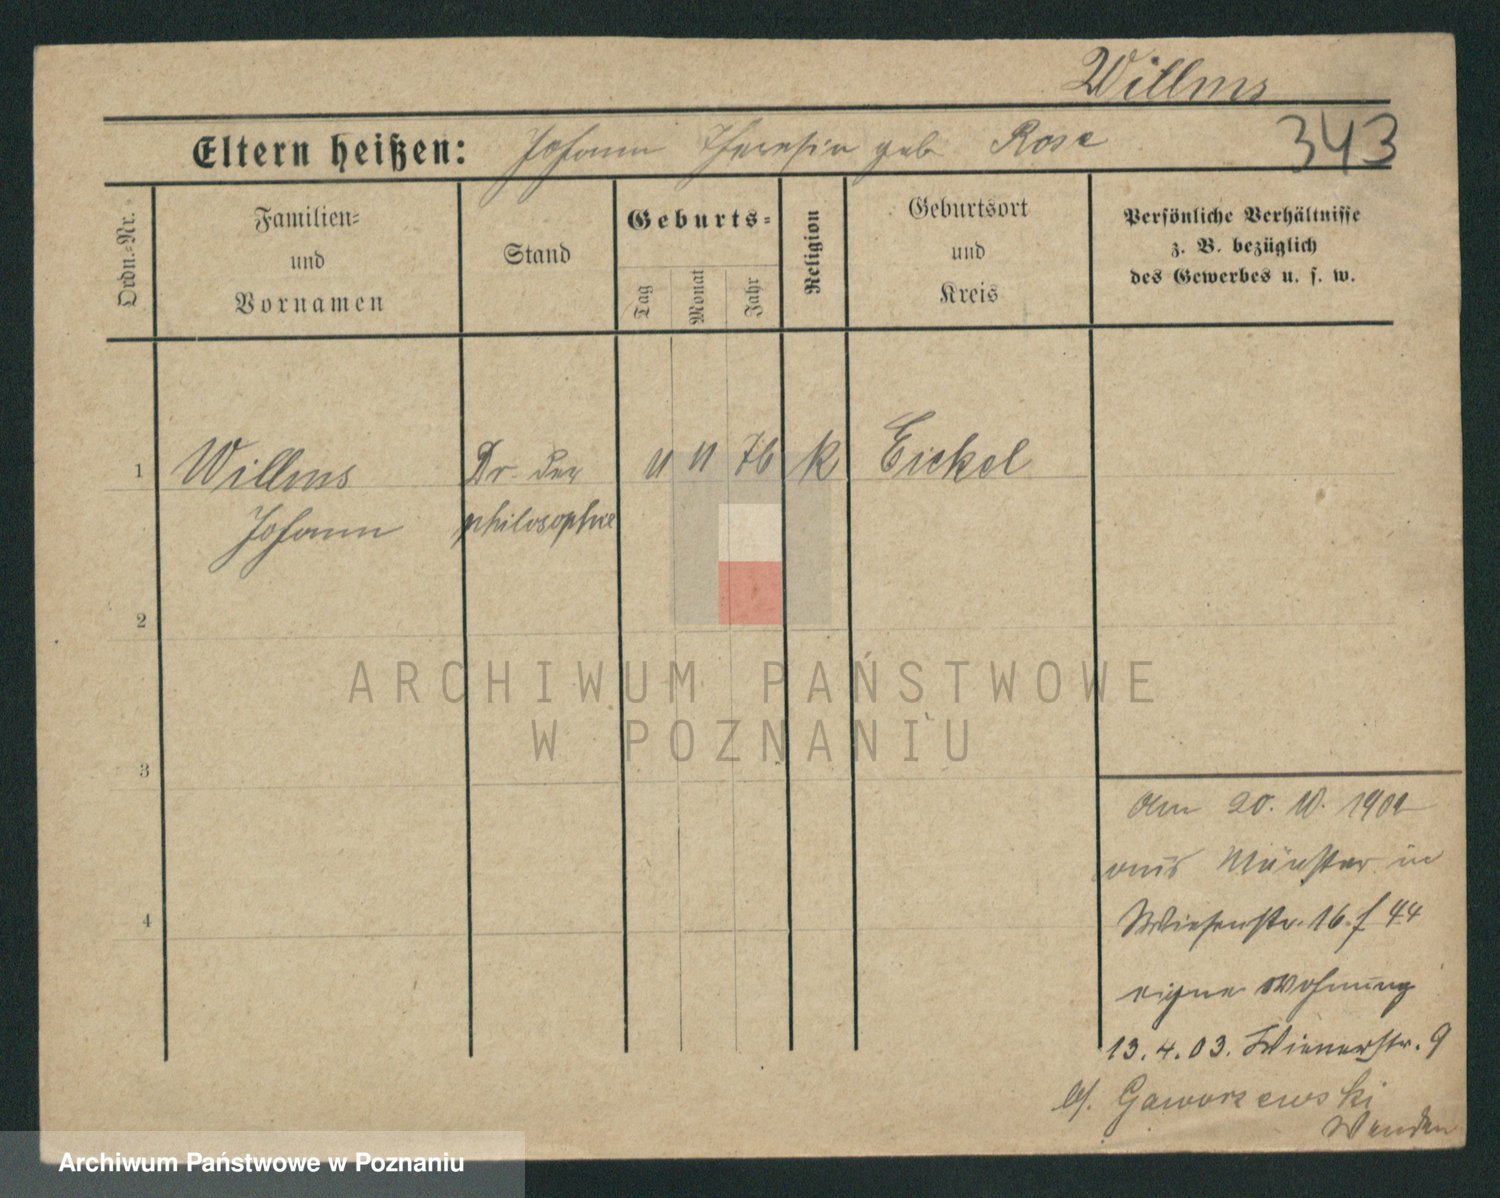 Willms
343
Eltern heißen: Johann Theresia geb Rose
Ordn.-Nr.
Familien-
und
Vornamen
Stand
Geburts-
Tag
Monat
Jahr
Religion
Geburtsort
und
Kreis
Persönliche Verhältnisse
z. B. bezüglich
des Gewerbes u. s. w.
1 Willms Dr. der 11 11 76 k Eickel
Johann philosophie
2
3
4
Am 20. 10. 1902
aus Münster in
Wiesenstr. 16. f 44
eigne Wohnung
13. 4. 03. Wienerstr. 9
bei Gaworzewski
Wenden
ARCHIWUM PAŃSTWOWE
W POZNANIU
Archiwum Państwowe w Poznaniu